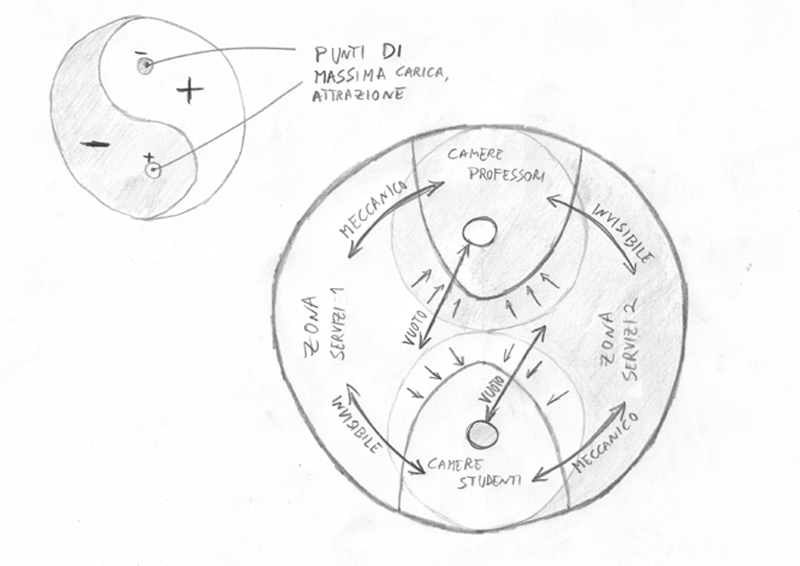 PUNTI DI
MASSIMA CARICA,
ATTRAZIONE
-
+
-
+
CAMERE
PROFESSORI
MECCANICO
INVISIBILE
ZONA
SERVIZI 1
VUOTO
ZONA
SERVIZI 2
VUOTO
INVISIBILE
MECCANICO
CAMERE
STUDENTI